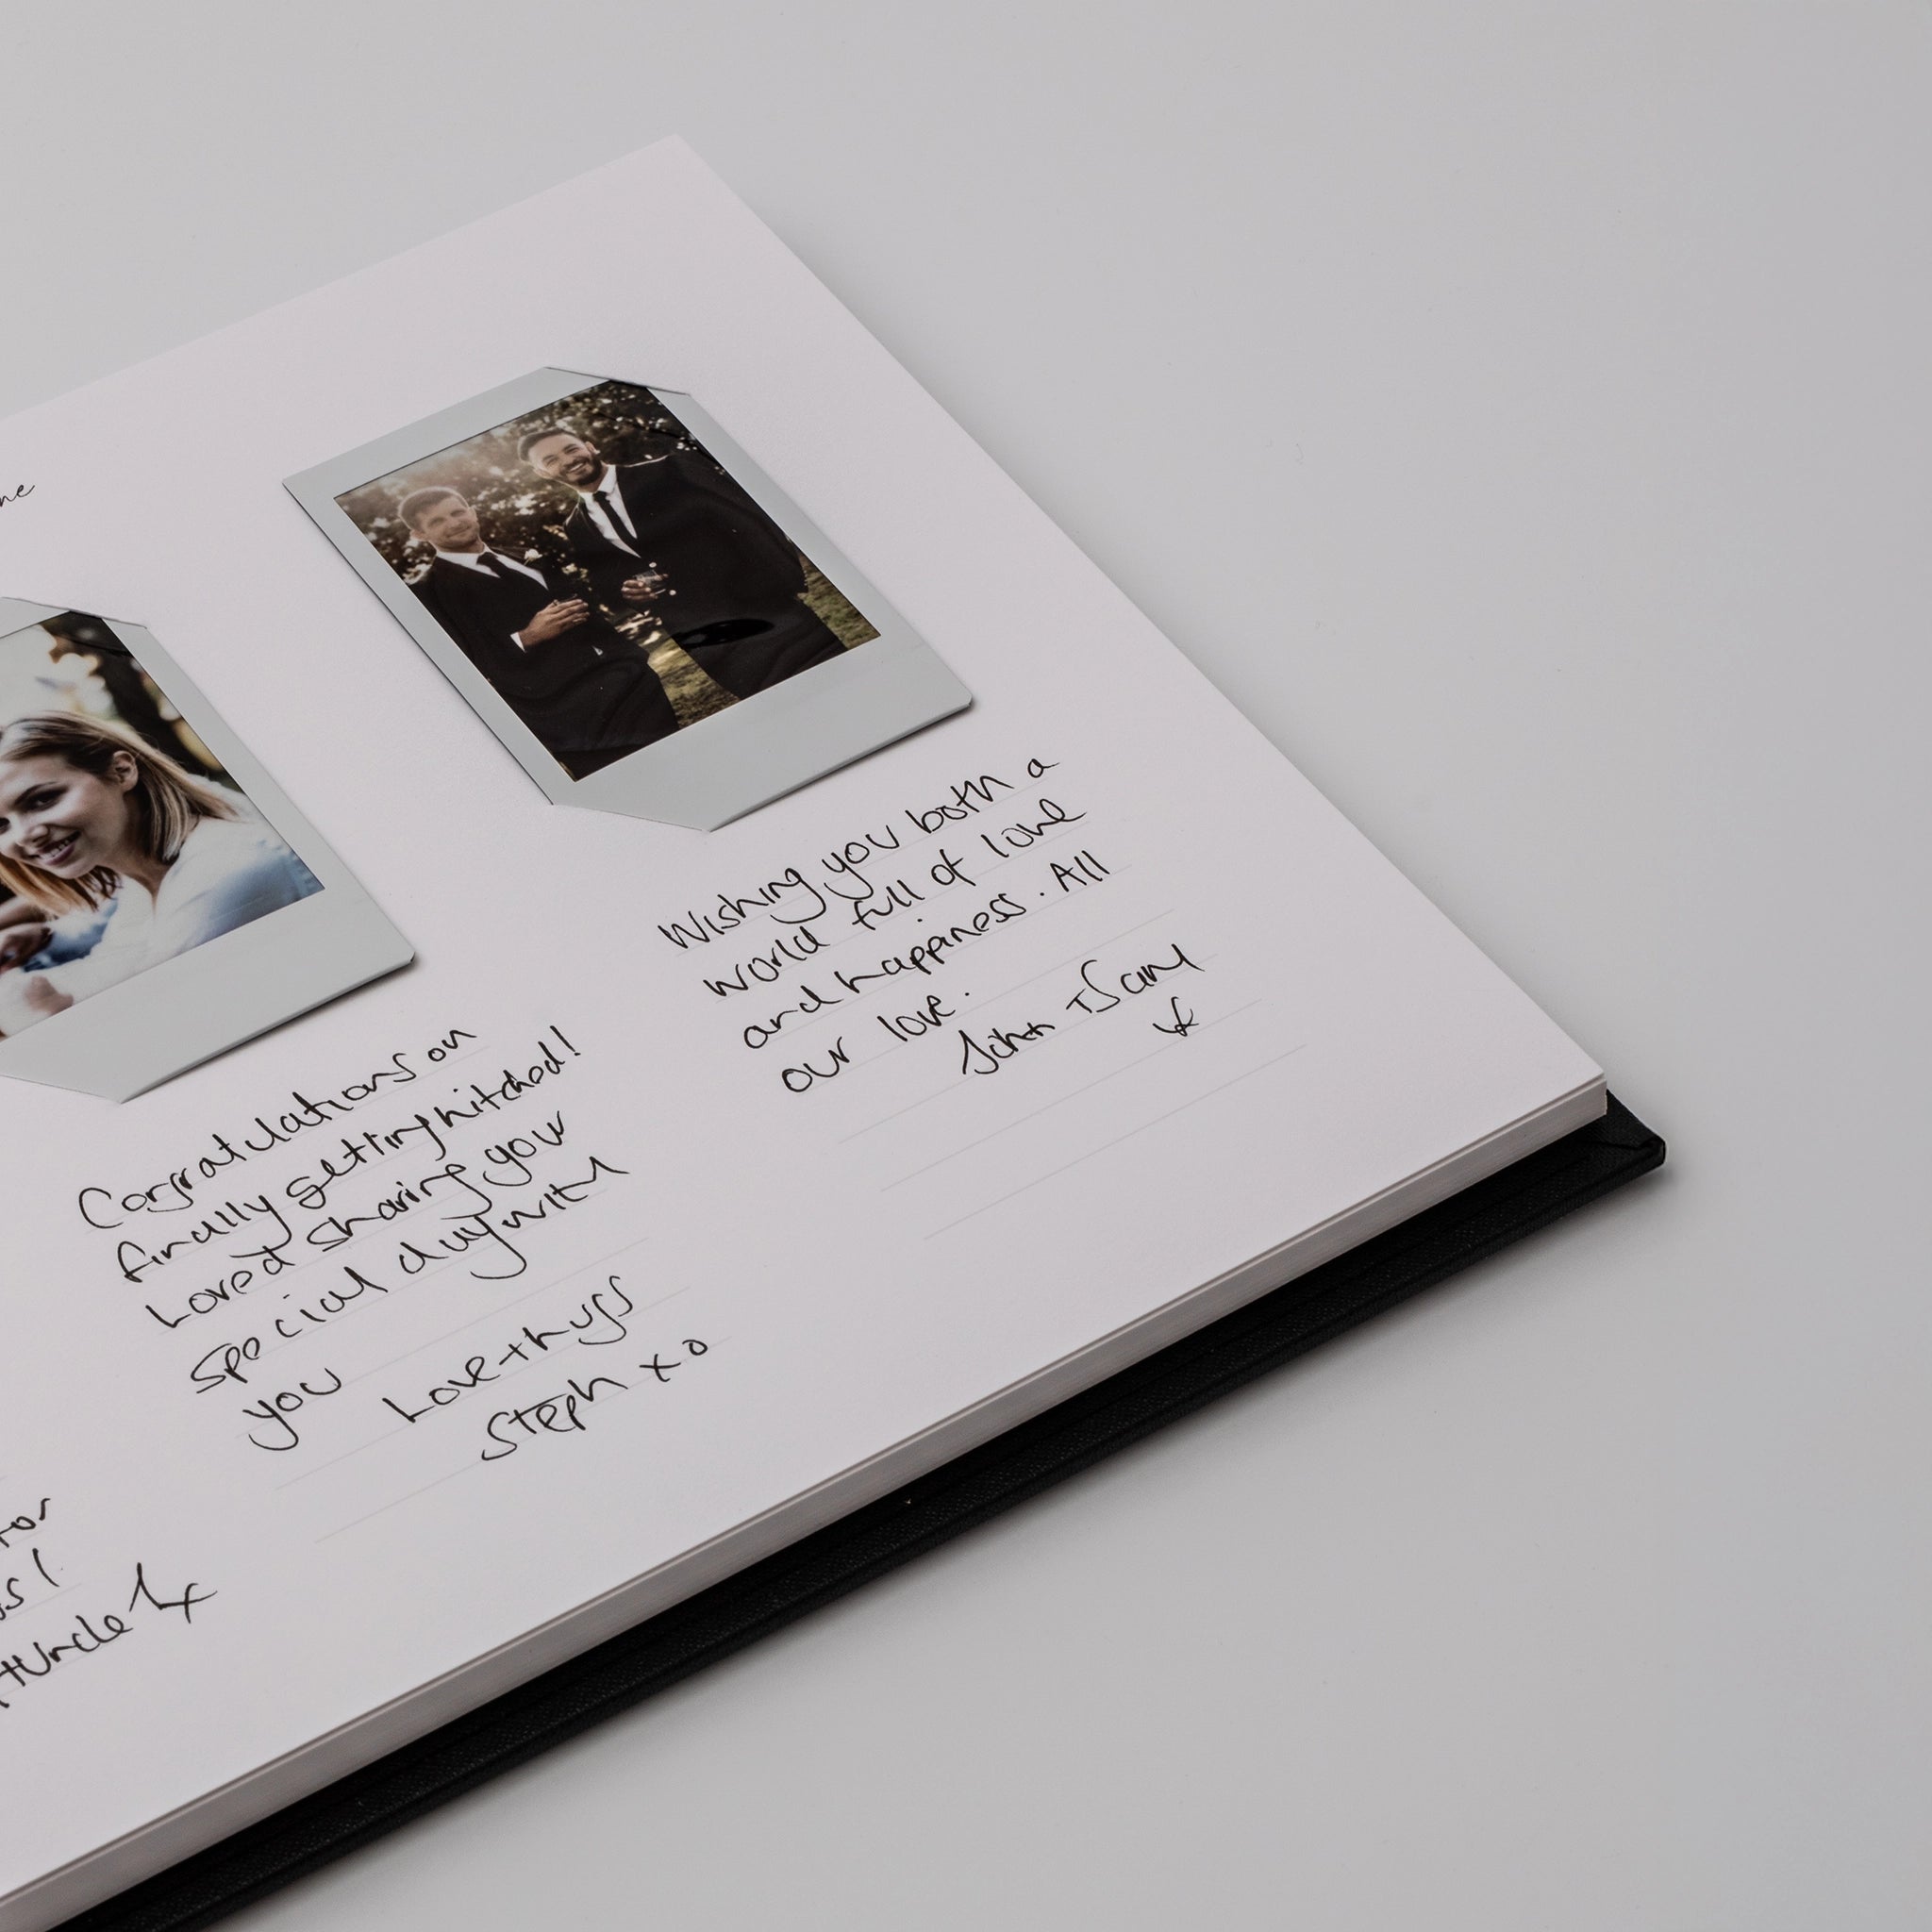 Congratulations on
finally getting hitched!
Loved sharing your
special day with
you
Love + hugs
Steph xo
Wishing you both a
world full of love
and happiness. All
our love.
John + Sam
x
+ Uncle